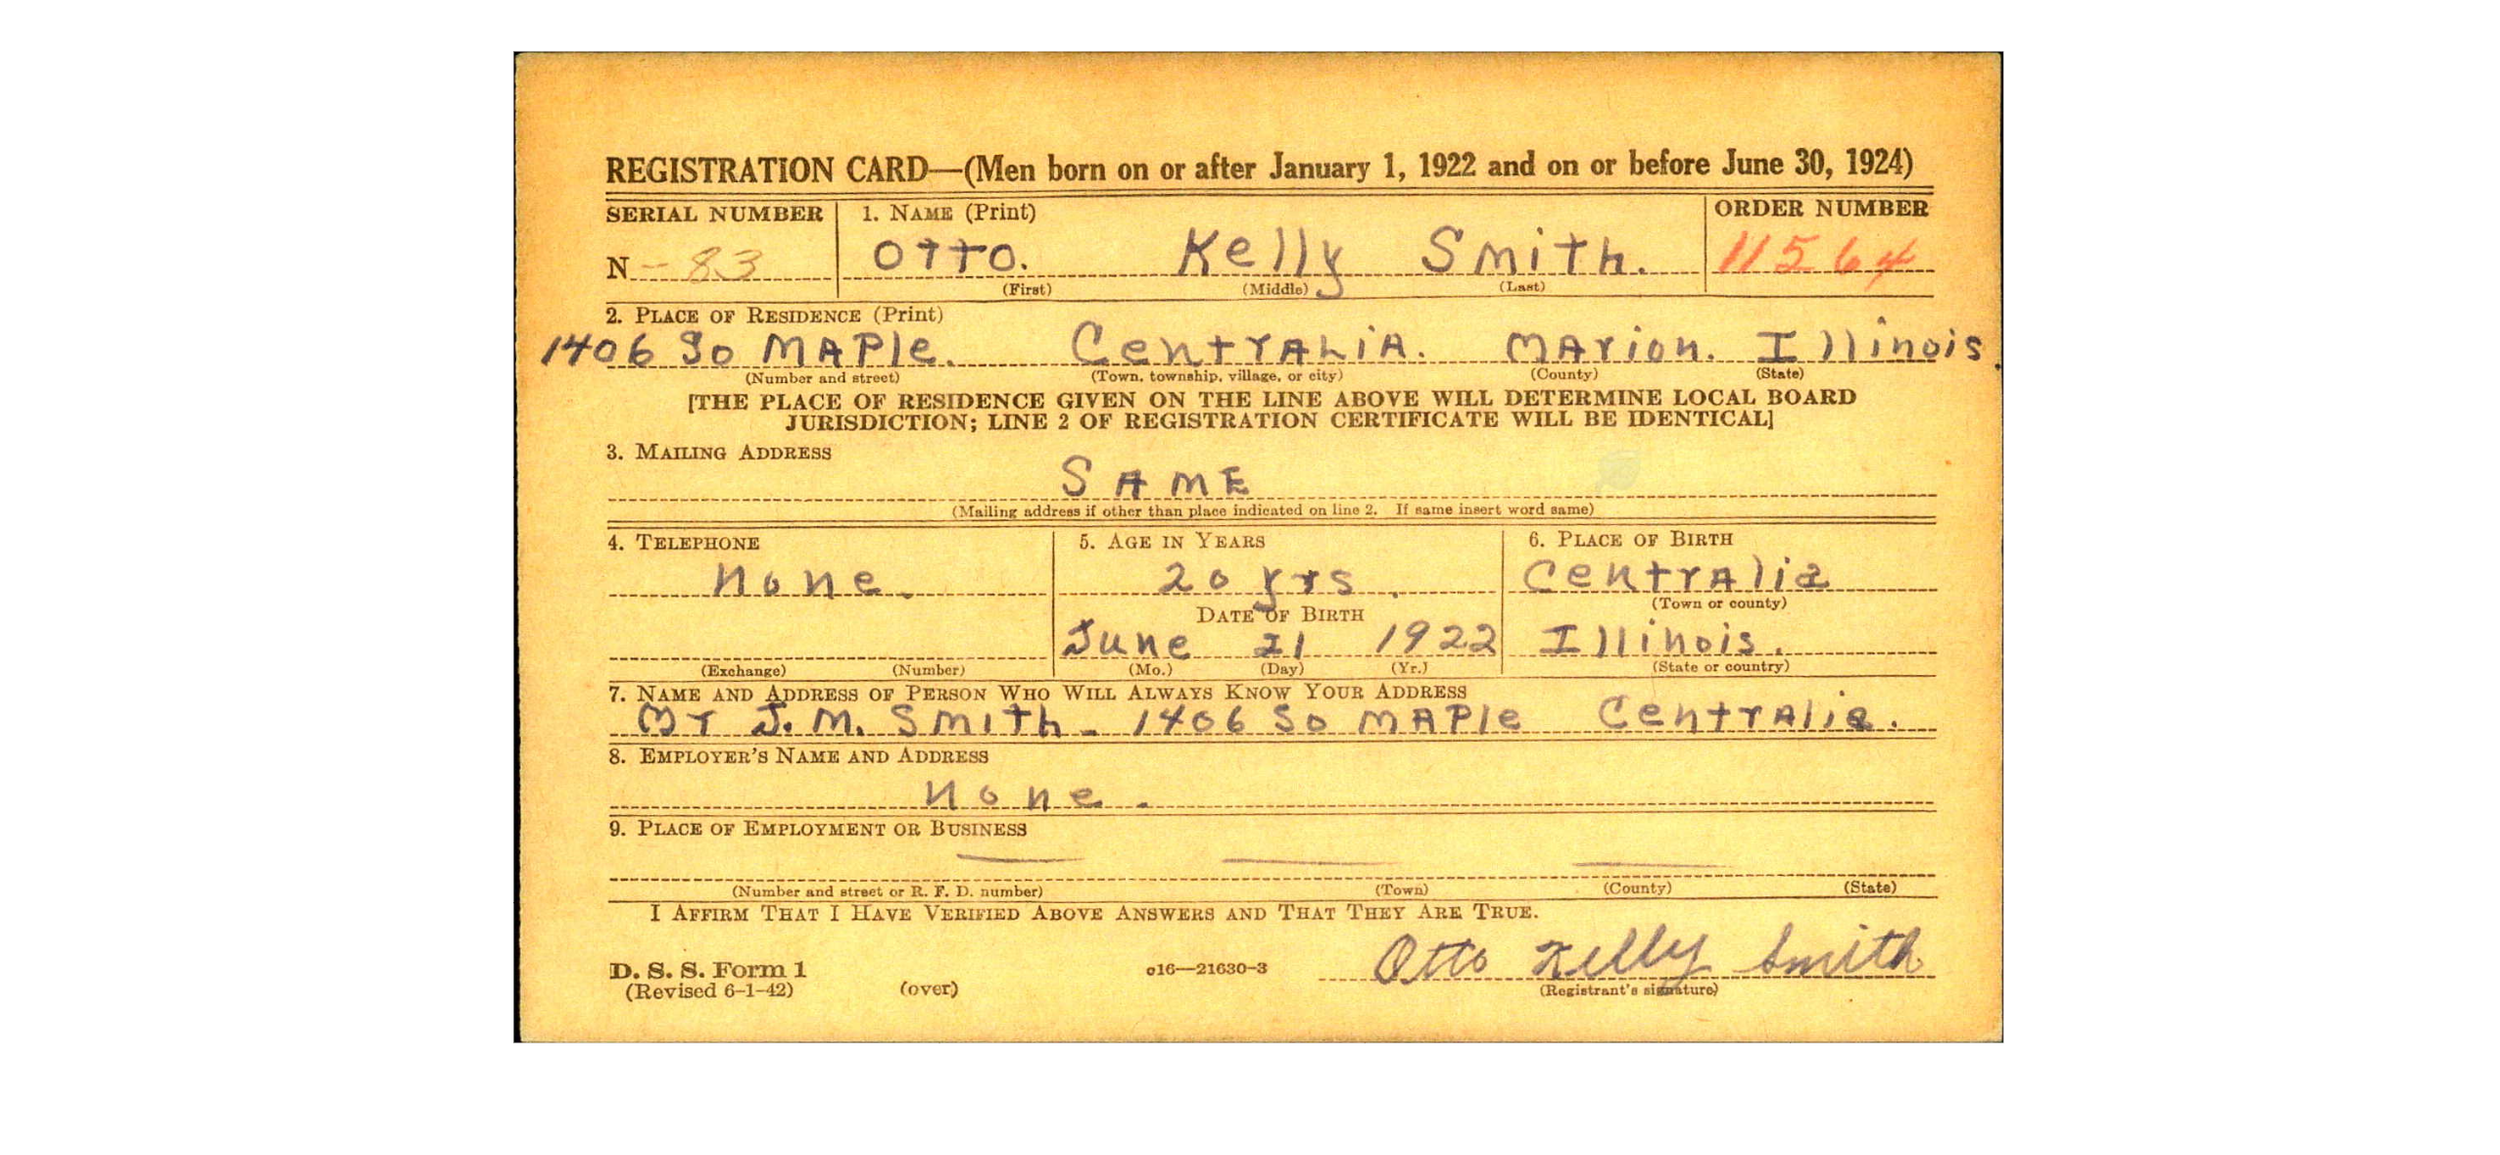 REGISTRATION CARD—(Men born on or after January 1, 1922 and on or before June 30, 1924)
SERIAL NUMBER 1. NAME (Print) ORDER NUMBER
N - 83 Otto. Kelly Smith. 11564
(First) (Middle) (Last)
2. PLACE OF RESIDENCE (Print)
1406 So MAPle. CentrALiA. MArion. Illinois.
(Number and street) (Town, township, village, or city) (County) (State)
[THE PLACE OF RESIDENCE GIVEN ON THE LINE ABOVE WILL DETERMINE LOCAL BOARD
JURISDICTION; LINE 2 OF REGISTRATION CERTIFICATE WILL BE IDENTICAL]
3. MAILING ADDRESS
SAME
(Mailing address if other than place indicated on line 2. If same insert word same)
4. TELEPHONE 5. AGE IN YEARS 6. PLACE OF BIRTH
None. 20 yrs. CentrAlia
(Town or county)
DATE OF BIRTH
June 21 1922 Illinois.
(Exchange) (Number) (Mo.) (Day) (Yr.) (State or country)
7. NAME AND ADDRESS OF PERSON WHO WILL ALWAYS KNOW YOUR ADDRESS
Mr J. M. Smith - 1406 So MAPle CentrAlia.
8. EMPLOYER'S NAME AND ADDRESS
None.
9. PLACE OF EMPLOYMENT OR BUSINESS
(Number and street or R. F. D. number) (Town) (County) (State)
I AFFIRM THAT I HAVE VERIFIED ABOVE ANSWERS AND THAT THEY ARE TRUE.
Otto Kelly Smith
D. S. S. Form 1 c16—21630-3
(Revised 6-1-42) (over) (Registrant's signature)